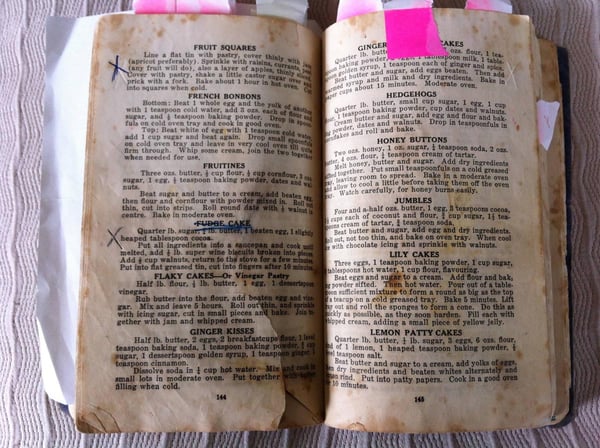 FRUIT SQUARES
Line a flat tin with pastry, cover thinly with
(apricot preferably). Sprinkle with raisins, currants,
(any fruit will do), also a layer of apples, thinly
Cover with pastry, shake a little castor sugar
prick with a fork. Bake about 1 hour in hot oven.
into squares when cold.
FRENCH BONBONS
Bottom: Beat 1 whole egg and the yolk of another
with 1 teaspoon cold water, add 2 ozs. each of flour and
sugar, and ½ teaspoon baking powder. Drop in spoon-
fuls on cold oven tray and cook in good oven.
Top: Beat white of egg with 1 teaspoon cold water,
add 1 cup sugar and beat again. Drop small spoonfuls
on cold oven tray and leave in very cool oven till
firm through. Whip some cream, join the two together
when needed for use.
FRUITINES
Three ozs. butter, ½ cup flour, ½ cup cornflour, 3 ozs.
sugar, 1 egg, ½ teaspoon baking powder, dates and wal-
nuts.
Beat sugar and butter to a cream, add beaten egg,
then flour and cornflour with powder mixed in. Roll out
thin, cut into strips. Roll round date with ½ walnut in
centre. Bake in moderate oven.
FUDGE CAKE
Quarter lb. sugar, ¼ lb. butter, 1 beaten egg, 1 slightly
heaped tablespoon cocoa.
Put all ingredients into a saucepan and cook until
melted, add ½ lb. super wine biscuits broken into pieces.
Add ½ cup walnuts, return to the stove for a few minutes.
Put into flat greased tin, cut into fingers after 10 minutes.
FLAKY CAKES—Or Vinegar Pastry
Half lb. flour, ½ lb. butter, 1 egg, 1 dessertspoon
vinegar.
Rub butter into the flour, add beaten egg and vine-
gar. Mix and leave 5 hours. Roll out thin, and sprinkle
with icing sugar, cut in small pieces and bake. Join to-
gether with jam and whipped cream.
GINGER KISSES
Half lb. butter, 2 eggs, 2 breakfastcups flour, 1 level
teaspoon baking soda, 1 teaspoon baking powder, ¾ cup
sugar, 1 dessertspoon golden syrup, 1 teaspoon ginger, 1
teaspoon cinnamon.
Dissolve soda in ¼ cup hot water. Mix and cook in
small lots in moderate oven. Put together with butter
filling when cold.
144
GINGER CAKES
Quarter lb. butter, oz. flour, 1 tea-
baking powder, tablespoons milk, 1 table-
golden syrup, 1 teaspoon each of ginger and spice.
Beat butter and sugar, add eggs beaten. Then add
syrup and milk and dry ingredients. Bake in
paper cups about 15 minutes. Moderate oven.
HEDGEHOGS
Quarter lb. butter, small cup sugar, 1 egg, 1 cup
flour, 1 teaspoon baking powder, cup dates and walnuts.
Cream butter and sugar, add egg and flour and bak-
powder, dates and walnuts. Drop in teaspoonfuls in
cornflakes and roll and bake.
HONEY BUTTONS
Two ozs. honey, 1 oz. sugar, ½ teaspoon soda, 2 ozs.
butter, 4 ozs. flour, ½ teaspoon cream of tartar.
Melt honey, butter and sugar. Add dry ingredients
sifted together. Put small teaspoonfuls on a cold greased
tray, leaving room to spread. Bake in a moderate oven
allow to cool a little before taking them off the oven
tray. Watch carefully, for honey burns easily.
JUMBLES
Four and a-half ozs. butter, 1 egg, 8 teaspoons cocoa,
½ cup each of coconut and flour, ½ cup sugar, 1½ tea-
spoons cream of tartar, ½ teaspoon soda.
Beat butter and sugar, add egg and dry ingredients.
Roll out, not too thin, and bake on oven tray. When cool
ice with chocolate icing and sprinkle with walnuts.
LILY CAKES
Three eggs, 1 teaspoon baking powder, 1 cup sugar,
tablespoons hot water, 1 cup flour, flavouring.
Beat eggs and sugar to a cream. Add flour and bak-
powder sifted. hot water. Pour out of a table-
spoon sufficient mixture to form a round as big as the top
of a teacup on a cold greased tray. Bake 5 minutes. Lift
tray out and roll the sponges to form a cone. Do this as
quickly as possible, as they soon harden. Fill each with
whipped cream, adding a small piece of yellow jelly.
LEMON PATTY CAKES
Quarter lb. butter, ½ lb. sugar, 3 eggs, 6 ozs. flour,
rind of 1 lemon, 1 heaped teaspoon baking powder,
level teaspoon salt.
Beat butter and sugar to a cream, add yolks of eggs,
then dry ingredients and beaten whites alternately and
lemon rind. Put into patty papers. Cook in a good oven
for 10 minutes.
145